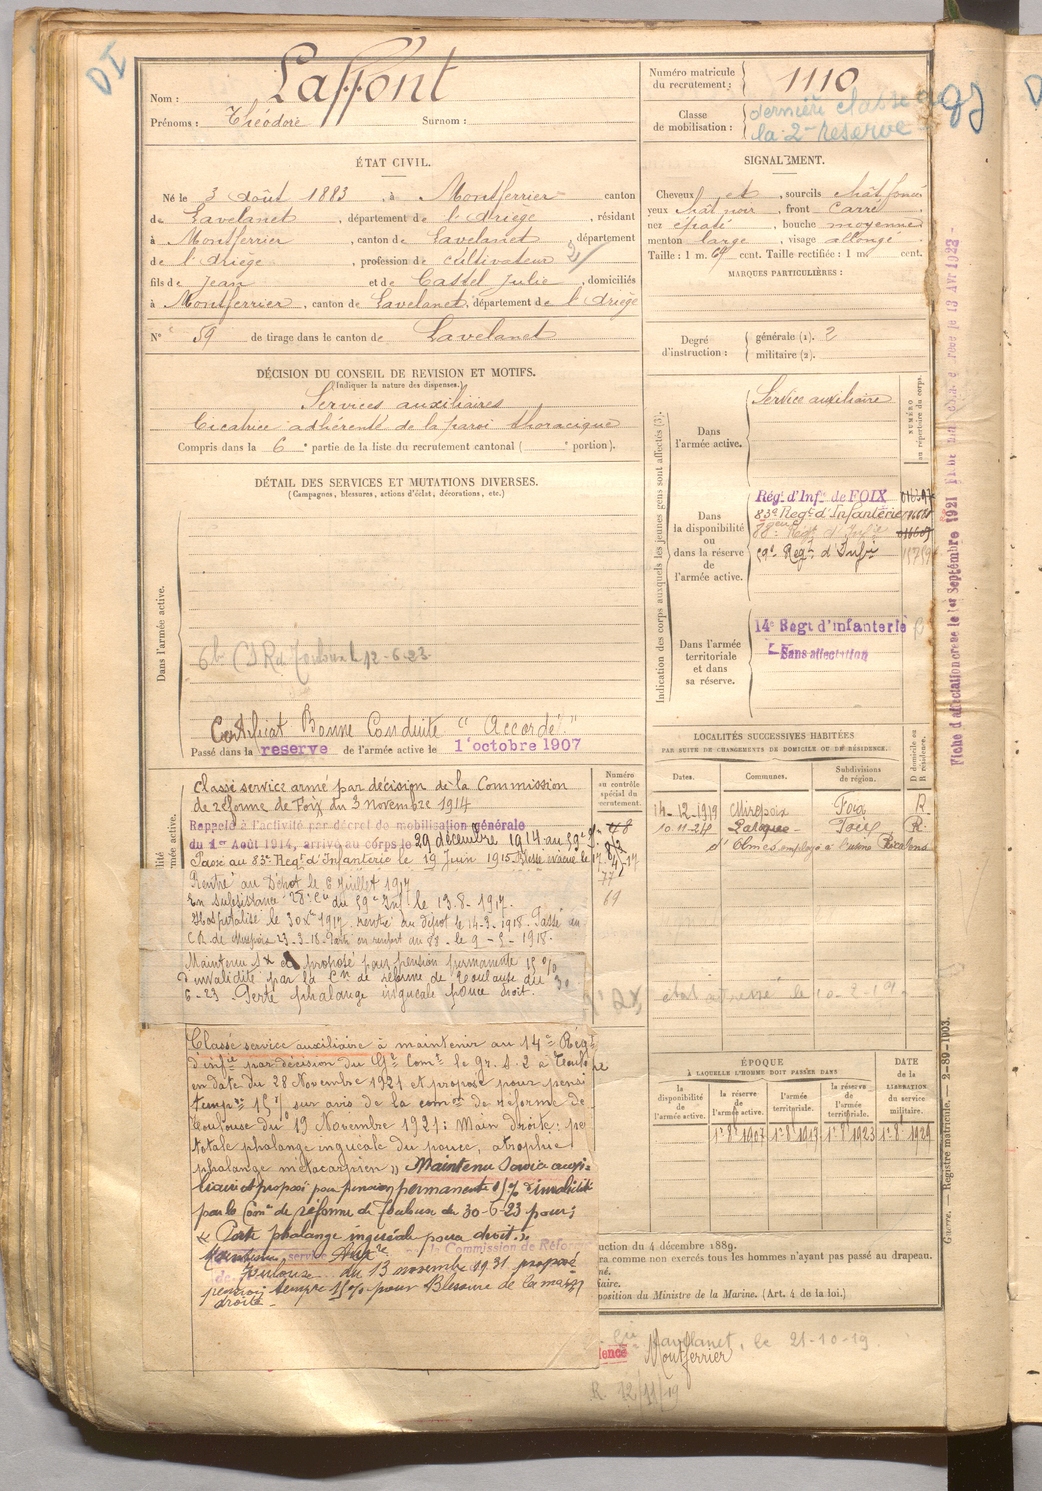 DI
Nom : Laffont
Prénoms : Théodore Surnom :
Numéro matricule du recrutement : 1110
Classe de mobilisation : dernière classe de la 2e réserve
ÉTAT CIVIL.
Né le 3 août 1883, à Montferrier canton
de Lavelanet, département de l'Ariège, résidant
à Montferrier, canton de Lavelanet, département
de l'Ariège, profession de cultivateur
fils de Jean et de Castel Julie, domiciliés
à Montferrier, canton de Lavelanet, département de l'Ariège
N° 59 de tirage dans le canton de Lavelanet
SIGNALEMENT.
Cheveux et sourcils chât foncé
yeux chât noir, front carré
nez épaté, bouche moyenne
menton large, visage allongé
Taille : 1 m. cent. Taille rectifiée : 1 m. cent.
MARQUES PARTICULIÈRES :
Degré d'instruction : générale (1). 2
militaire (2).
DÉCISION DU CONSEIL DE REVISION ET MOTIFS.
(Indiquer la nature des dispenses.)
Services auxiliaires
Cicatrice adhérente de la paroi thoracique
Compris dans la 6e partie de la liste du recrutement cantonal ( e portion).
DÉTAIL DES SERVICES ET MUTATIONS DIVERSES.
(Campagnes, blessures, actions d'éclat, décorations, etc.)
Dans l'armée active.
12-6-23
Certificat Bonne Conduite "Accordé"
Passé dans la réserve de l'armée active le 1er octobre 1907
Indication des corps auxquels les jeunes gens sont affectés (3).
NUMÉRO au répertoire du corps.
Dans l'armée active. Service auxiliaire
Dans la disponibilité ou dans la réserve de l'armée active.
Régt d'Infie de FOIX
83e Régt d'Infanterie
88e Régt d'Infie
59e Régt d'Infie
Dans l'armée territoriale et dans sa réserve.
14e Régt d'infanterie
Sans affectation
Fiche d'affectation créée le 1er Septembre 1921
LOCALITÉS SUCCESSIVES HABITÉES
PAR SUITE DE CHANGEMENTS DE DOMICILE OU DE RÉSIDENCE.
Dates. Communes. Subdivisions de région. D domicile ou R résidence.
14-12-1919 Mirepoix Foix R
10-11-24 Laroque Foix R.
d'Olmes employé à l'usine
Numéro au contrôle spécial du recrutement.
Classé service armé par décision de la Commission
de réforme de Foix du 3 novembre 1914
Rappelé à l'activité par décret de mobilisation générale
du 1er Août 1914, arrivé au corps le 29 décembre 1914 au 59e
Passé au 83e Régt d'Infanterie le 19 Juin 1915. Blessé évacué le
Rentré au Dépôt le 8 Juillet 1917
En subsistance 28e Cie du 59e Inf le 13-8-1917.
Hospitalisé le 30 Xbre 1917. rentré au dépôt le 14-3-1918. Passé au
CR de Mirepoix 23-3-18. Parti en renfort au 88 le 9-5-1918.
Maintenu SX et proposé pour pension permanente 15 %
d'invalidité par la Con de réforme de Toulouse du 30
6-23 Perte phalange unguéale pouce droit.
état adressé le 10-2-19
Classé service auxiliaire à maintenir au 14e Régt
d'infie par décision du Gal Comt le Gr. S. 2 à Toulouse
en date du 28 Novembre 1921 et proposé pour pensi
tempre 15% sur avis de la comon de réforme de
Toulouse du 19 Novembre 1921 : Main droite : perte
totale phalange unguéale du pouce, atrophie
phalange métacarpien » Maintenu Service auxi-
liaire et proposé pour pension permanente 15% d'invalidité
par la Comon de réforme de Toulouse du 30-6-23 pour :
« Perte phalange unguéale pouce droit. »
Maintenu service Auxre la Commission de Réforme
de Toulouse du 13 novembre 1931 proposé
pension tempre 15% pour Blessure de la main
droite.
ÉPOQUE
À LAQUELLE L'HOMME DOIT PASSER DANS
la disponibilité de l'armée active. la réserve de l'armée active. l'armée territoriale. la réserve de l'armée territoriale.
DATE de la LIBÉRATION du service militaire.
1er 8bre 1907
uction du 4 décembre 1889.
ra comme non exercés tous les hommes n'ayant pas passé au drapeau.
né.
iaire.
position du Ministre de la Marine. (Art. 4 de la loi.)
Guerre. — Registre matricule. — 2-89-1903.
Lavelanet, le 21-10-19
Montferrier
R. 12/11/19